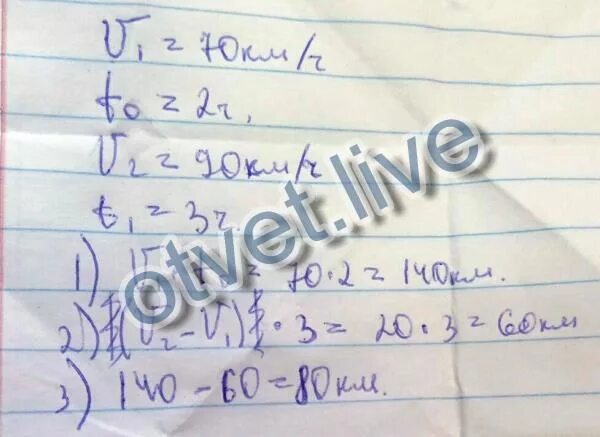 V₁ = 70км/ч
t₀ = 2ч.
V₂ = 90км/ч
t₁ = 3ч
1) V = 70·2 = 140км.
2) (V₂ – V₁) · 3 = 20·3 = 60км
3) 140 – 60 = 80км.
otvet.live